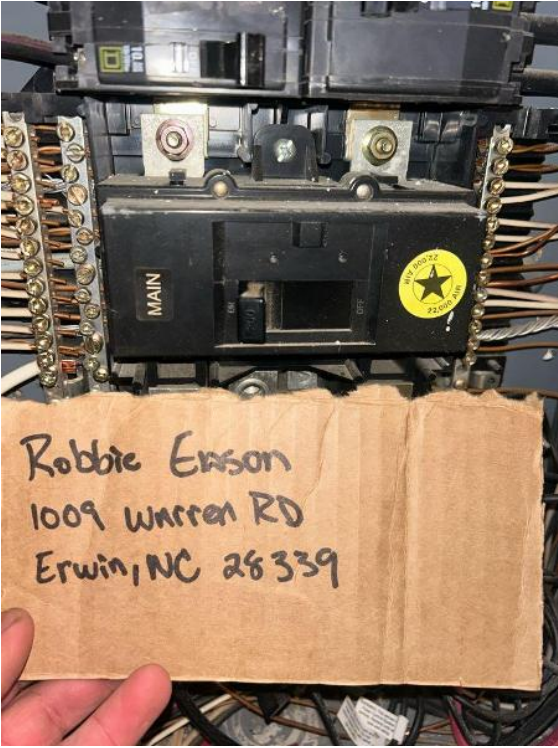 MAIN
ON
200
OFF
22,000 AIR
22,000 AIR
Robbie Enson
1009 Warren RD
Erwin, NC 28339